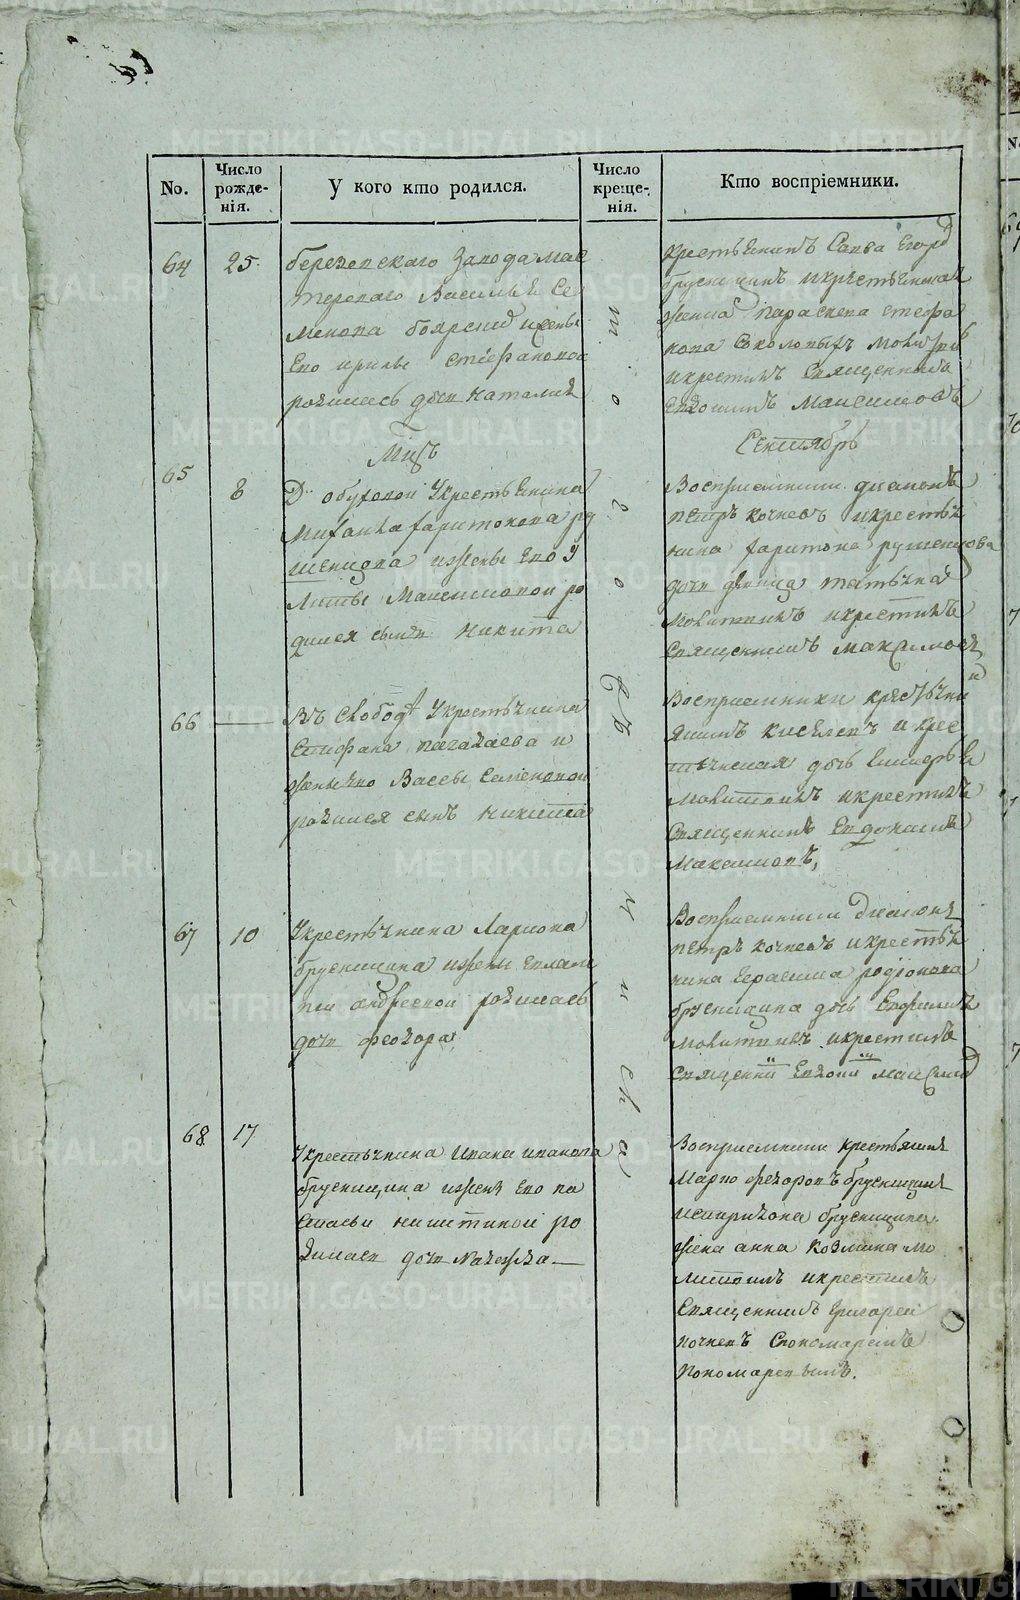 No.
Число рожде-
нія.
У кого кто родился.
Число креще-
нія.
Кто воспріемники.
64
25.
березовскаго завода мас
терскаго Василья Се
менова и жены
Его ирины стефановой
родилась дочь Наталия
крестьянинъ Савва Егоро
брусницинъ и крестьянская
жена параскева стефа
нова Соколовыхъ молитвов
и крестилъ священникъ
Евдокимъ Максимовъ
Мцъ
Сентябрь
65
8
Д. обуховой у крестьянина
Михаила харитонова ру
шеницова и жены Его у
литы Максимовой ро
дился сынъ Никита
Восприемники диаконъ
петръ кочневъ и крестья
нина харитона рушенцова
дочь девица татьяна
молитвилъ и крестилъ
священникъ максимовъ
66
Въ слободе у крестьянина
Стефана и
жены его Вассы Семеновой
родился сынъ Никита
Восприемники крестьяни
Якимъ киселевъ и крес
тьянская дочь
молитвилъ и крестилъ
Священникъ Евдокимъ
Максимовъ,
67
10
У крестьянина Лариона
брусницина и жены Евлам
пии андреевой родилась
дочь феодора
Восприемники диаконъ
петръ кочневъ и крестья
нина Герасима родіонова
брусницина дочь Евфимия
молитвилъ и крестилъ
Священни Евдоки Максимо
68
17
У крестьянина Ивана иванова
брусницина и жены Его на
стасьи никитиной ро
дилась дочь Надежда
Восприемники крестьянинъ
Марко федоровъ брусницинъ
и спиридона брусницина
жена анна Козмина мо
литвилъ и крестилъ
Священникъ григорей
кочневъ Спономаремъ
Пономаревымъ.
тогоже числа
METRIKI.GASO-URAL.RU